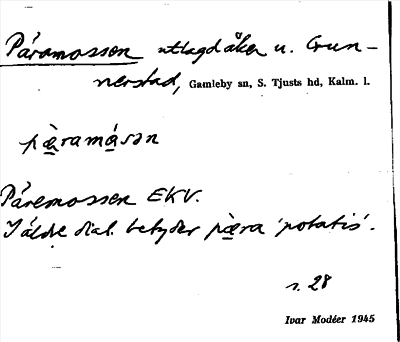 Päramossen utlagd åker u. Gun-
nerstad, Gamleby sn, S. Tjusts hd, Kalm. l.
pæ̀ramåsən
Päremossen EKV.
I äldre dial. betyder pæ̀ra 'potatis'.
s. 28
Ivar Modéer 1945